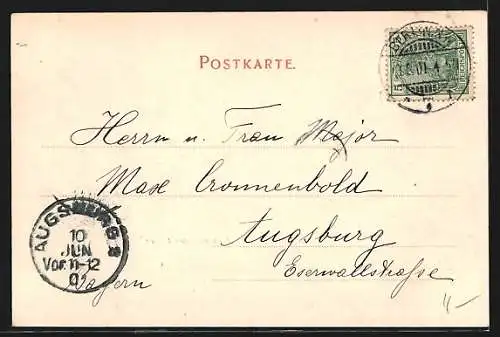 POSTKARTE.
Herrn u. Frau Major
Max Cronnenbold
Augsburg
Eserwallstrasse
Bayern
AUGSBURG 2
10
JUN
Vor. 11-12
01
5